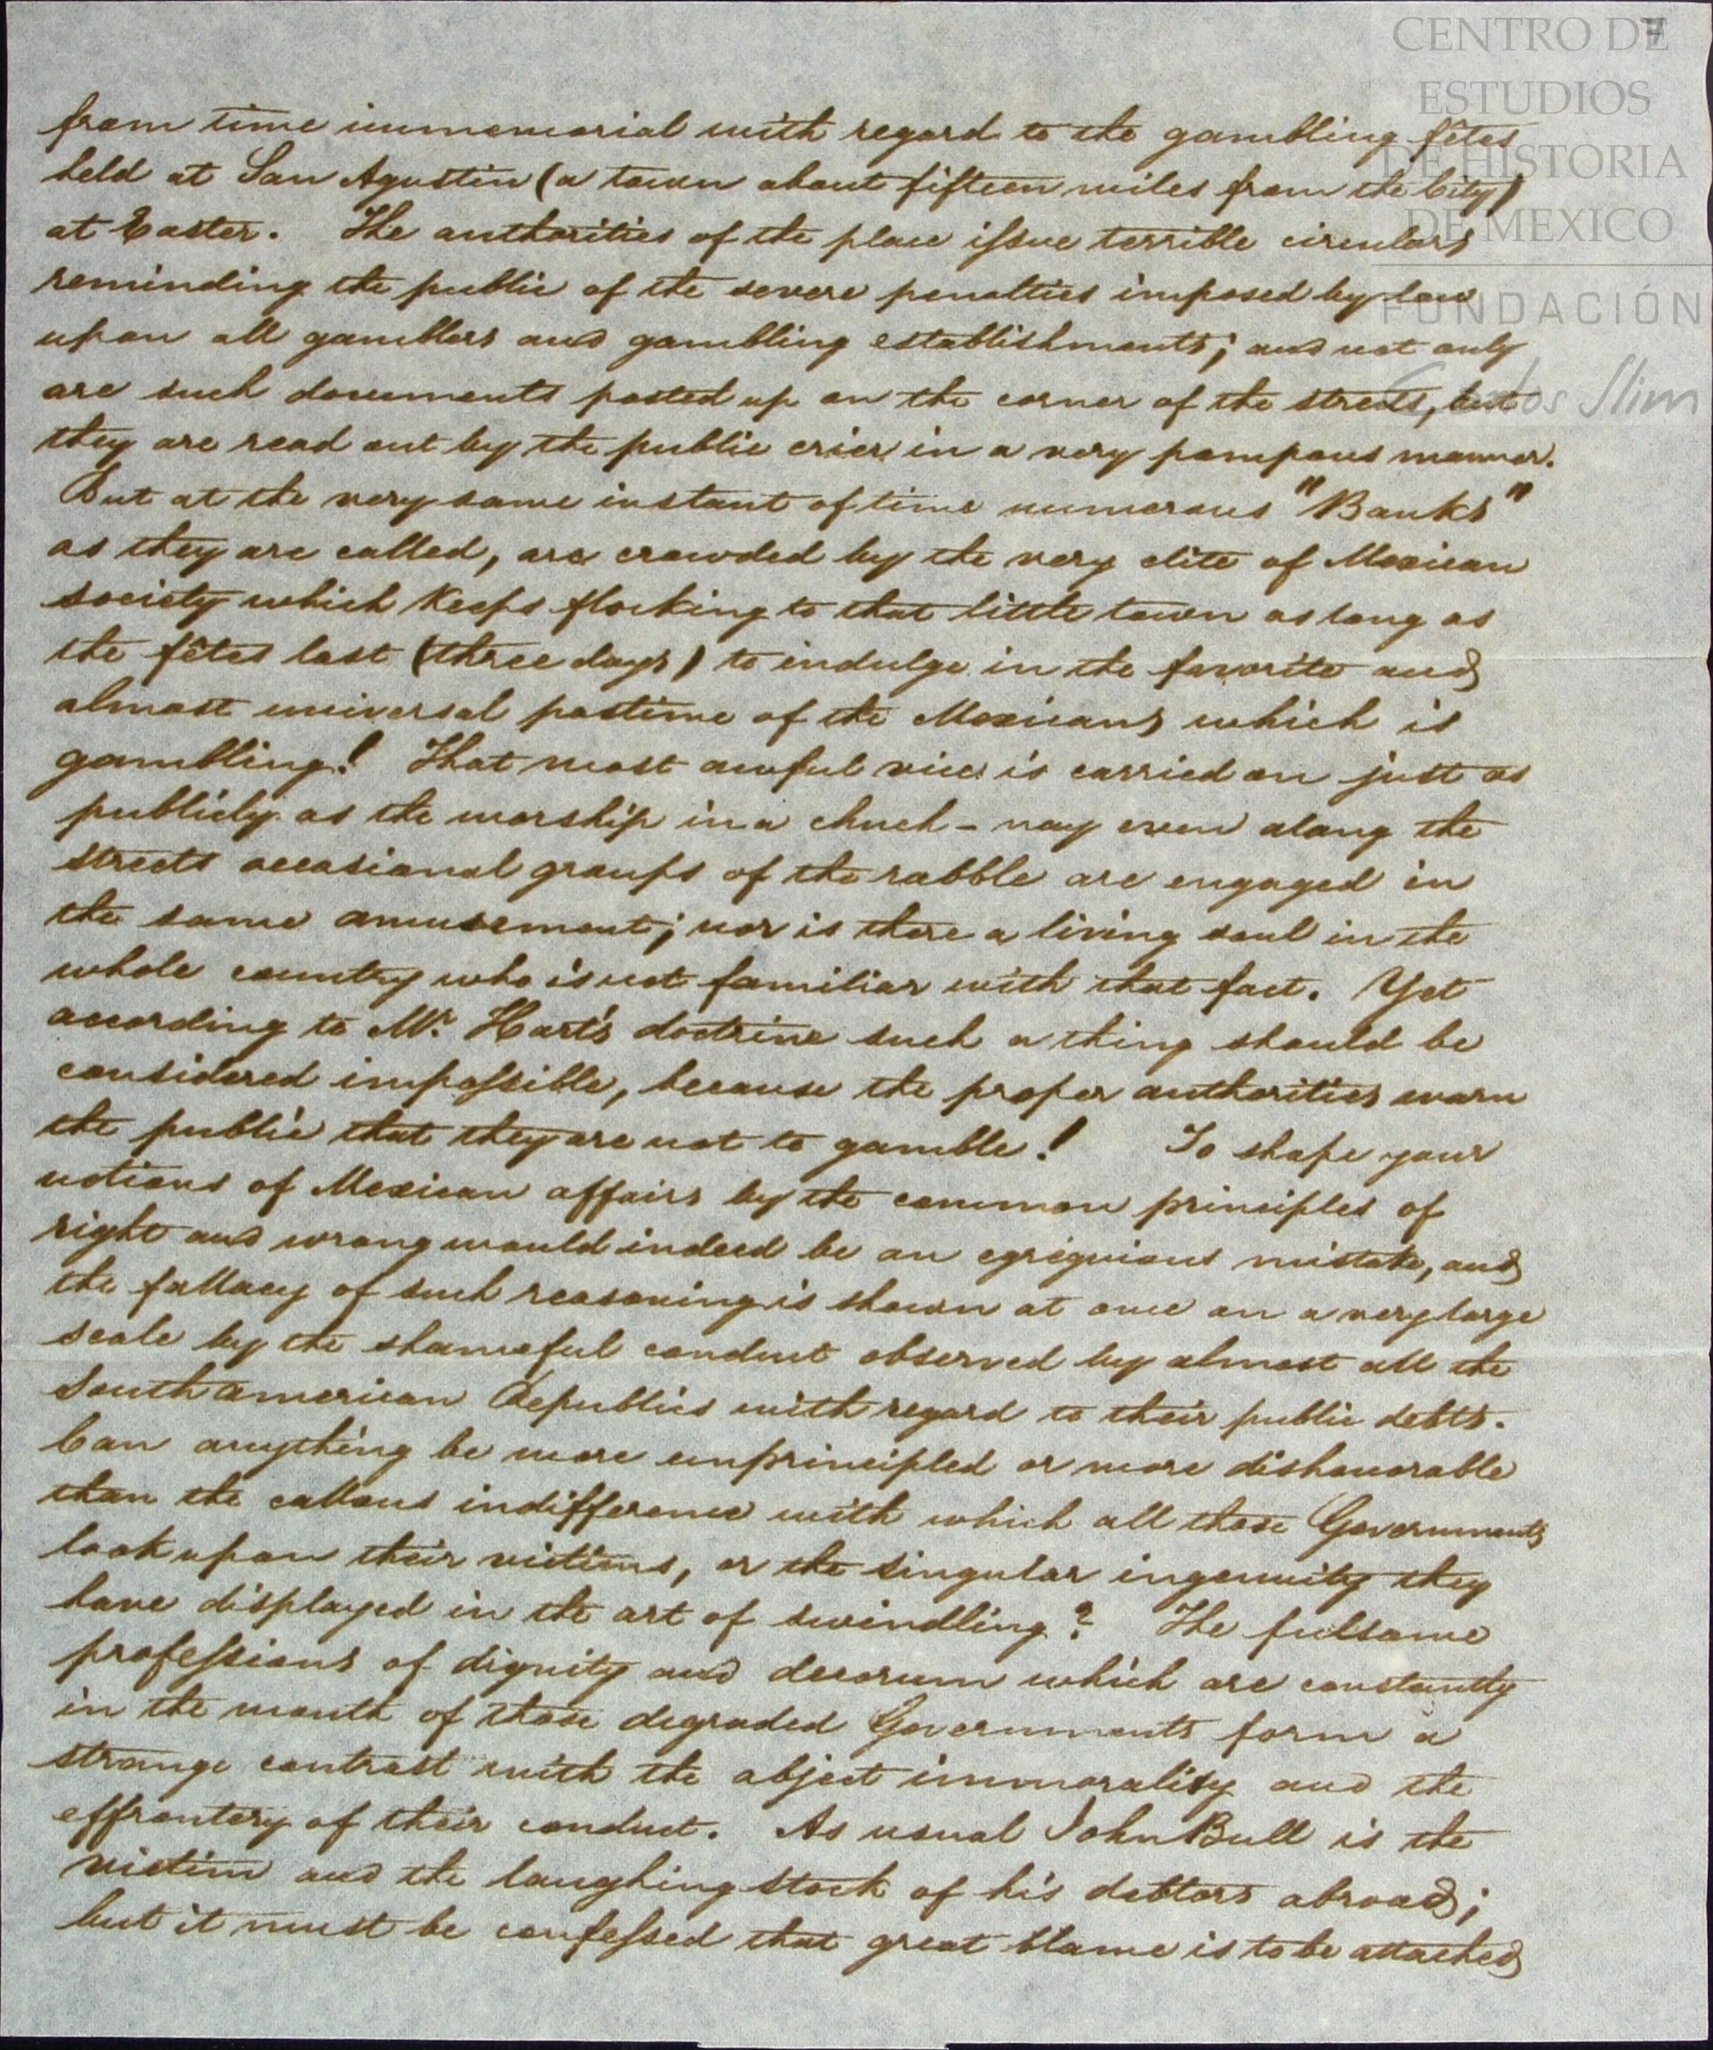 7
CENTRO DE
ESTUDIOS
DE HISTORIA
DE MEXICO
FUNDACIÓN
Carlos Slim
from time immemorial with regard to the gambling fêtes
held at San Agustin (a town about fifteen miles from the City)
at Easter. The authorities of the place issue terrible circulars
reminding the public of the severe penalties imposed by law
upon all gamblers and gambling establishments; and not only
are such documents posted up on the corner of the streets, but
they are read out by the public crier in a very pompous manner.
But at the very same instant of time numerous "Banks"
as they are called, are crowded by the very elite of Mexican
society which keeps flocking to that little town as long as
the fêtes last (three days) to indulge in the favorite and
almost universal pastime of the Mexicans which is
gambling! That most awful vice is carried on just as
publicly as the worship in a chuch - nay even along the
streets occasional groups of the rabble are engaged in
the same amusement; nor is there a living soul in the
whole country who is not familiar with that fact. Yet
according to Mr. Hart's doctrine such a thing should be
considered impossible, because the proper authorities warn
the public that they are not to gamble! To shape your
notions of Mexican affairs by the common principles of
right and wrong would indeed be an egrigious mistake, and
the fallacy of such reasoning is shown at once on a very large
scale by the shameful conduct observed by almost all the
South american Republics with regard to their public debts.
Can anything be more unprincipled or more dishonorable
than the callous indifference with which all those Governments
look upon their victims, or the singular ingenuity they
have displayed in the art of swindling? The fulsome
professions of dignity and decorum which are constantly
in the mouth of those degraded Governments form a
strange contrast with the abject immorality and the
effrontery of their conduct. As usual John Bull is the
victim and the laughing stock of his debtors abroad;
but it must be confessed that great blame is to be attached